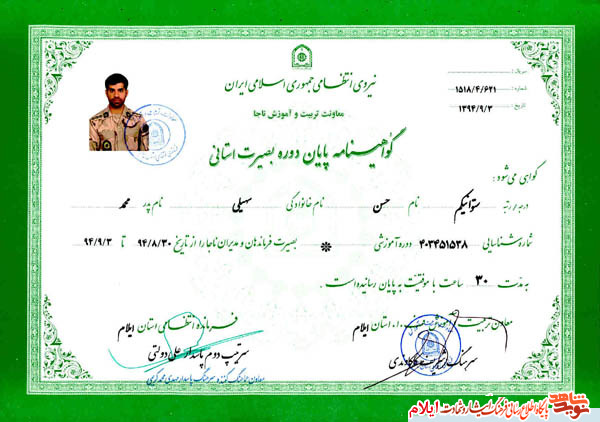 نیروی انتظامی جمهوری اسلامی ایران
معاونت تربیت و آموزش ناجا
گواهینامه پایان دوره بصیرت استانی
سریال :
شماره : ۱۵۱۸/۴/۶۲۱
تاریخ : ۱۳۹۴/۹/۳
گواهی می‌شود :
درجه / رتبه ستوانیکم نام حسن نام خانوادگی سهیلی نام پدر محمد
شماره شناسایی ۴۰۳۴۵۱۵۳۸ دوره آموزشی بصیرت فرماندهان و مدیران ناجا را از تاریخ ۹۴/۸/۳۰ تا ۹۴/۹/۳
به مدت ۳۰ ساعت با موفقیت به پایان رسانیده است.
معاون تربیت و آموزش ف.ا. استان ایلام
فرمانده انتظامی استان ایلام
سرتیپ دوم پاسدار علی دولتی
سرهنگ
نوید شاهد
پایگاه اطلاع رسانی فرهنگ ایثار و شهادت ایلام